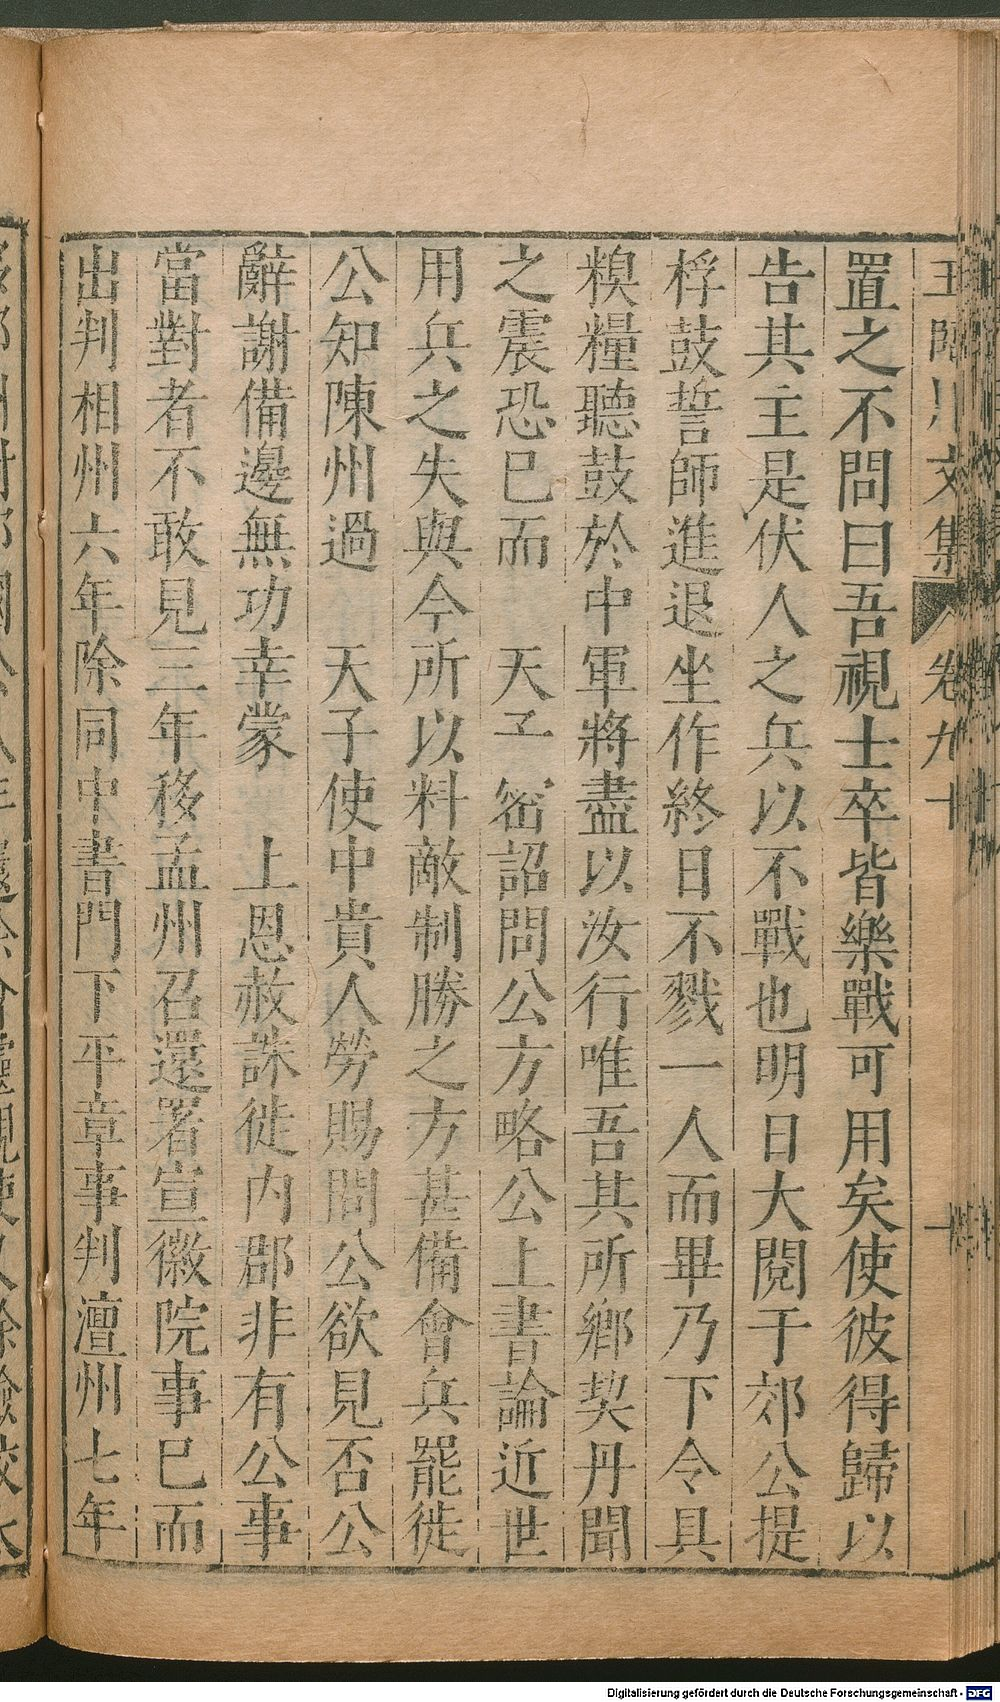 置之不問曰吾視士卒皆樂戰可用矣使彼得歸以
告其主是伏人之兵以不戰也明日大閱于郊公提
桴鼓誓師進退坐作終日不戮一人而畢乃下令具
糗糧聽鼓於中軍將盡以汝行唯吾其所鄉契丹聞
之震恐已而　天子密詔問公方略公上書論近世
用兵之失與今所以料敵制勝之方甚備會兵罷徙
公知陳州過　天子使中貴人勞賜問公欲見否公
辭謝備邊無功幸蒙　上恩赦誅徙內郡非有公事
當對者不敢見三年移孟州召還署宣徽院事已而
出判相州六年除同中書門下平章事判澶州七年
文集　卷九十
Digitalisierung gefördert durch die Deutsche Forschungsgemeinschaft - DFG